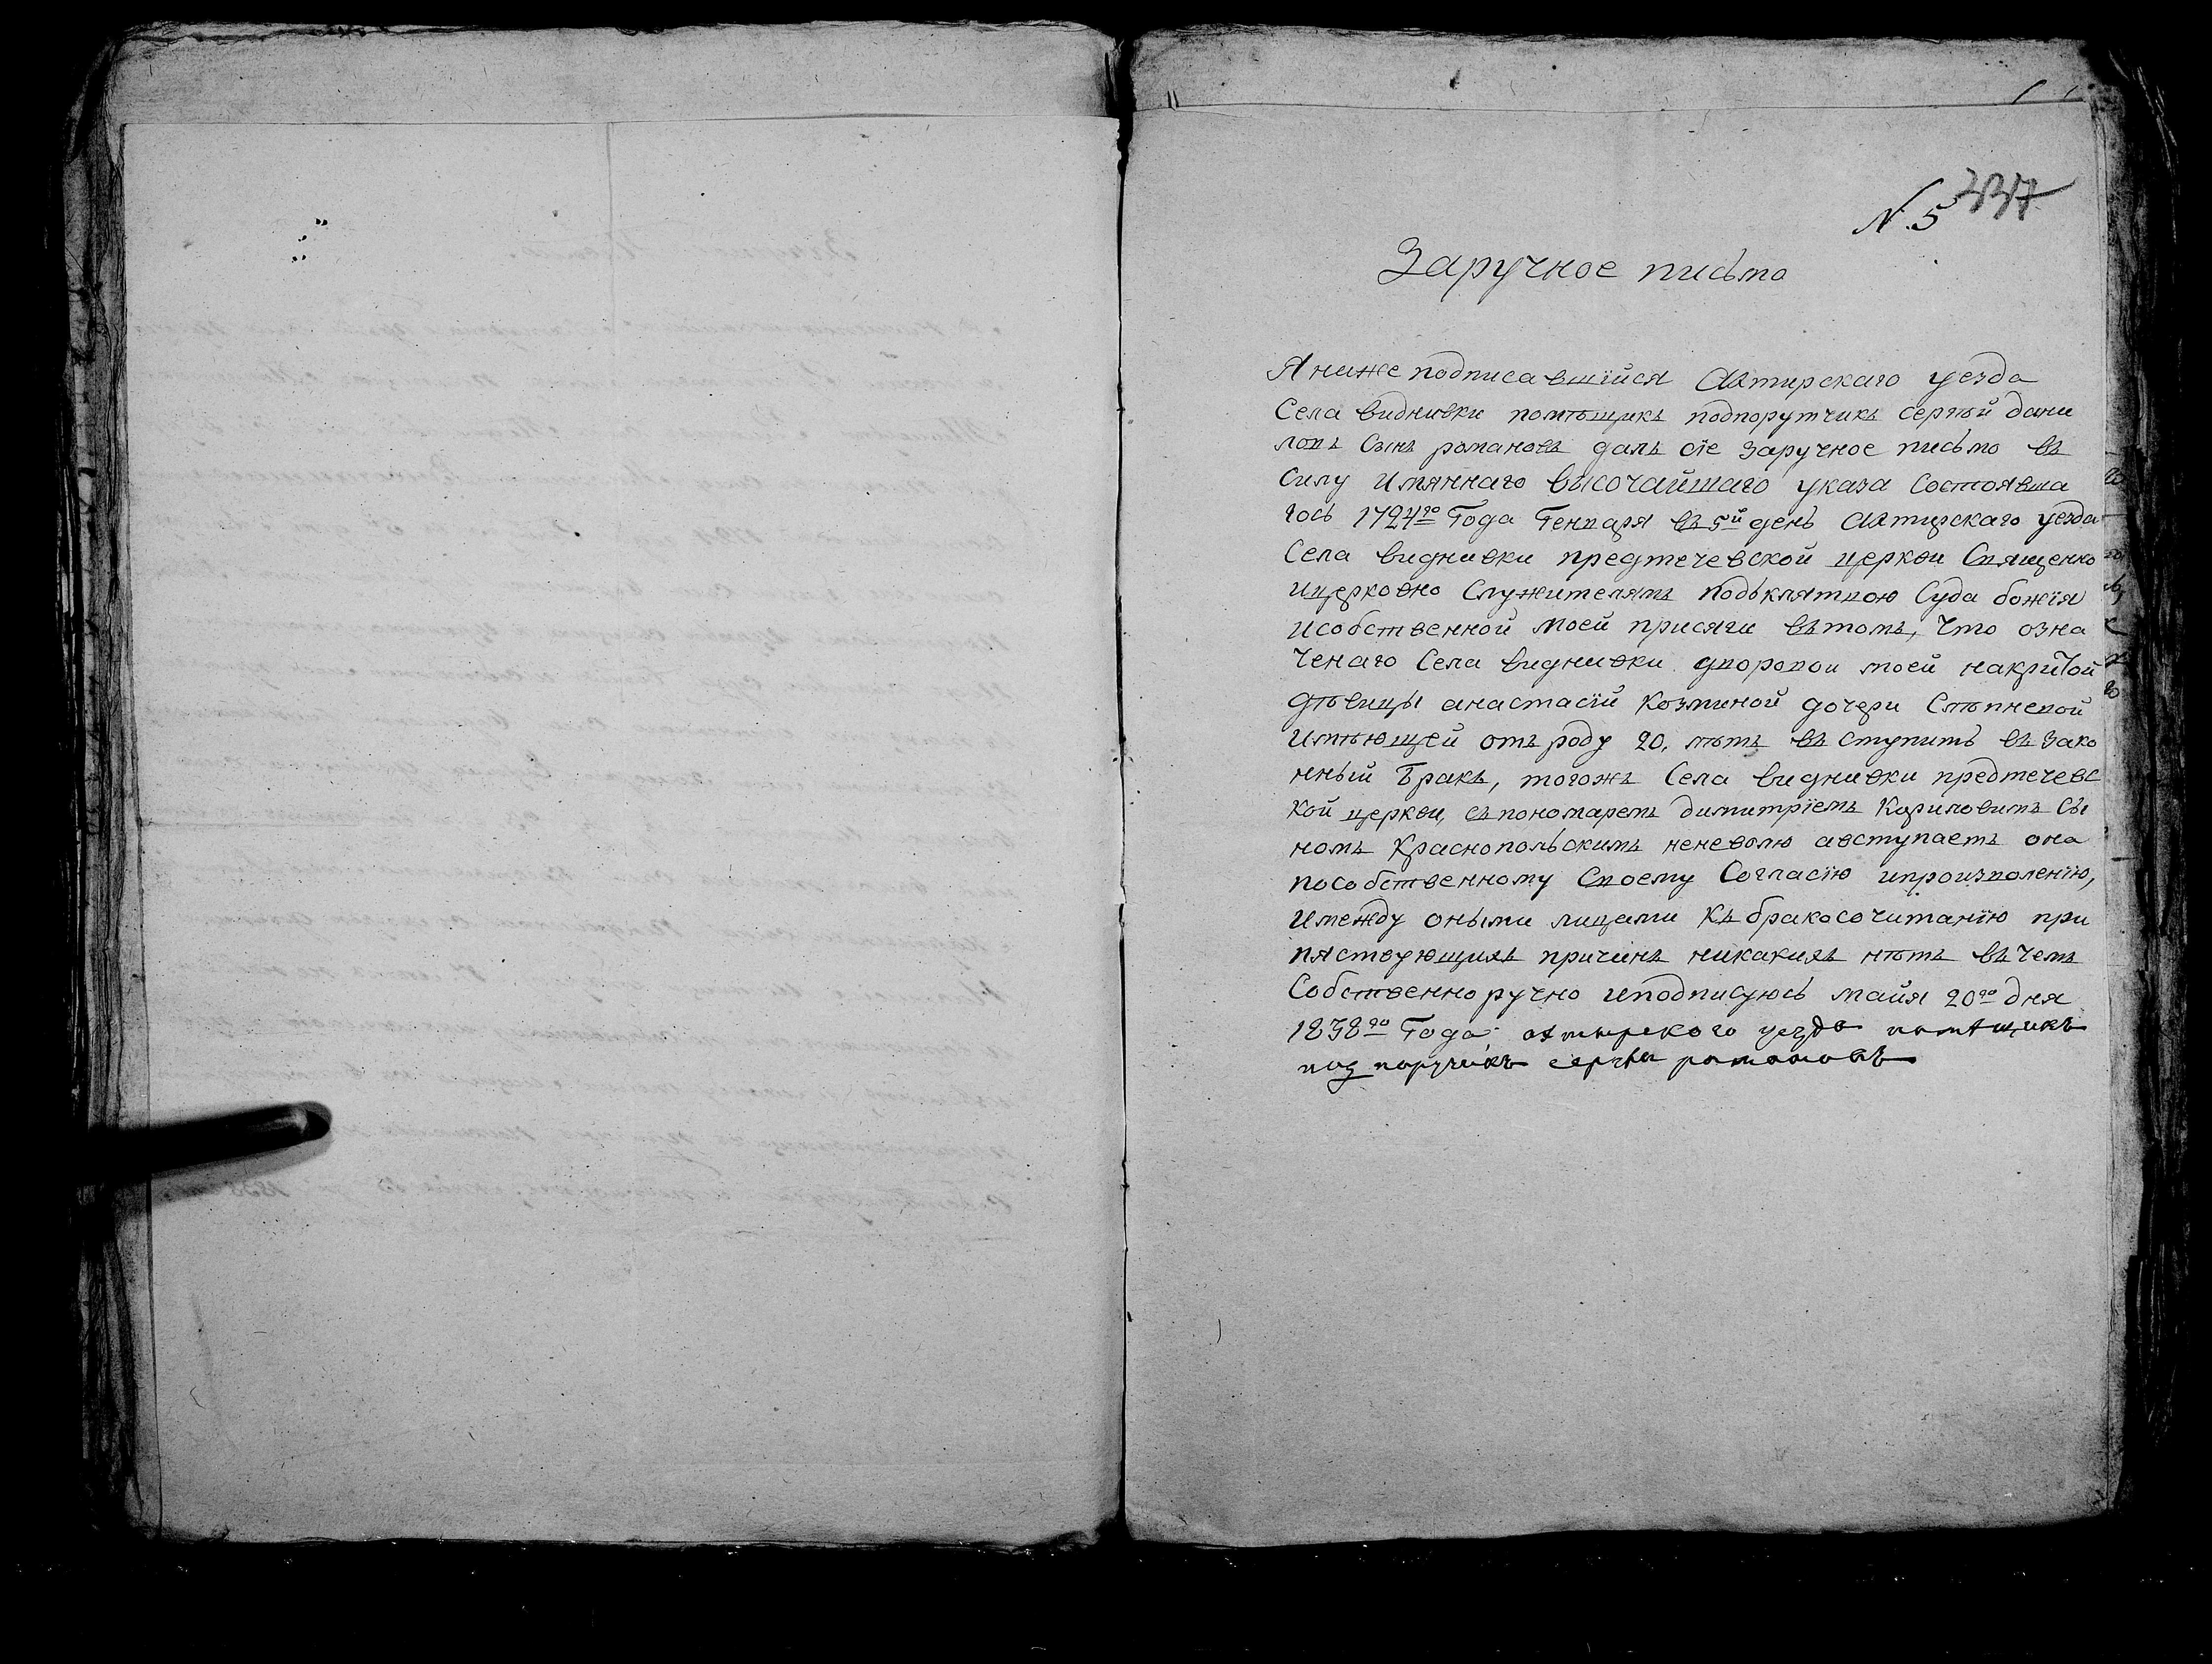 N. 5 337
Заручное письмо
Я ниже подписавшїйся Ахтирскаго уезда
Села видновки помѣщикъ подпорутчикъ сергѣй дани
ловъ Сынъ романовъ далъ сїе Заручное письмо въ
Силу имяннаго высочайшаго указа Состоявша
гось 1724го Года Генваря въ 5й день Ахтирскаго уезда
Села видновки предтечевской церкви Священно
ицерковно Служителямъ подъклятвою Суда божїя
исобственной моей присяги вътомъ, что озна
ченаго Села видновки дворовои моей
дѣвицы анастасїи Козминой дочери
имѣющей отъ роду 20, лѣтъ въступить въ зако
нный Бракъ, тогожъ Села видновки предтечевс
кой церкви, съпономаремъ димитрїемъ Кириловимъ Сы
номъ Краснопольскимъ неневолю авступаетъ она
пособственному Своему Согласїю ипроизволенїю,
имежду оными лицами Къ бракосочитанїю при
пяствующихъ причинъ никакихъ нѣтъ въ чемъ
Собственноручно иподписуюсь майя 20го дня
1838го Года ахтырского уезда памѣщикъ
под поручикъ сергѣи романовъ